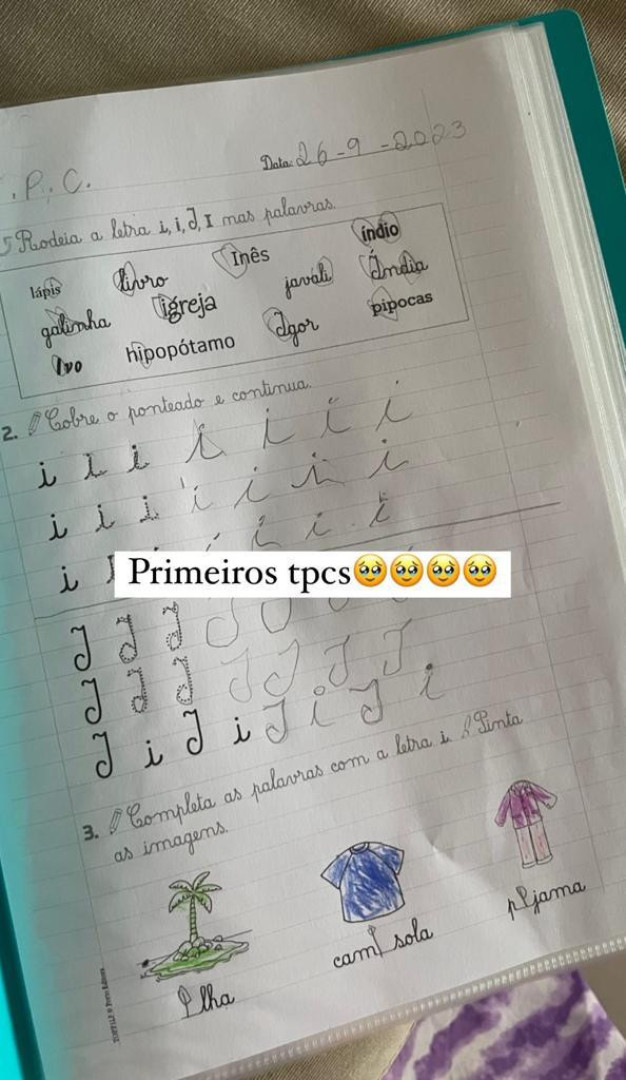 .P.C.
Data: 26-9-2023
Rodeia a letra i, i, J, I nas palavras.
lápis livro Inês índio
galinha igreja javali Índia
Ivo hipopótamo Igor pipocas
2. Cobre o ponteado e continua.
i i i i i i i
i i i i i i i
i i i i
Primeiros tpcs🥹🥹🥹🥹
J J J J J
J J J J J J J
J i J i J i J i
3. Completa as palavras com a letra i. Pinta
as imagens.
ilha
camisola
pijama